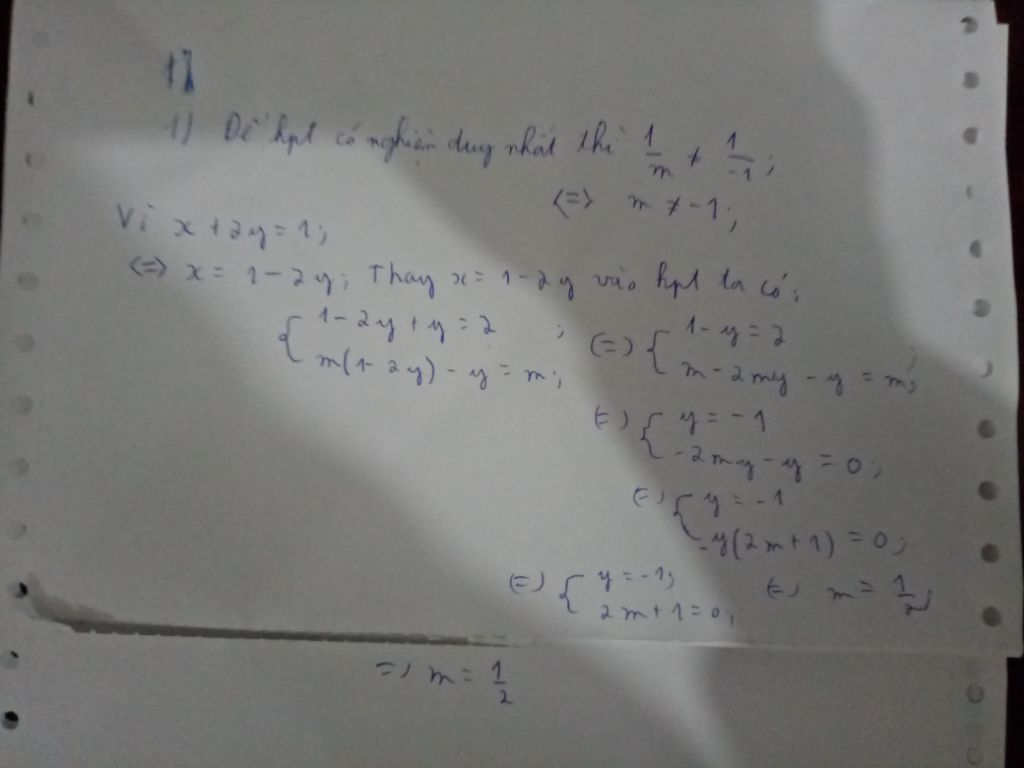 1)
1) Để hpt có nghiệm duy nhất thì 1/m ≠ 1/-1;
<=> m ≠ -1;
Vì x + 2y = 1;
<=> x = 1 - 2y; Thay x = 1 - 2y vào hpt ta có;
{ 1 - 2y + y = 2 ; <=> { 1 - y = 2
m(1 - 2y) - y = m; m - 2my - y = m;
<=> { y = -1
-2my - y = 0;
<=> { y = -1
-y(2m + 1) = 0;
<=> { y = -1; <=> m = 1/2;
2m + 1 = 0;
=> m = 1/2